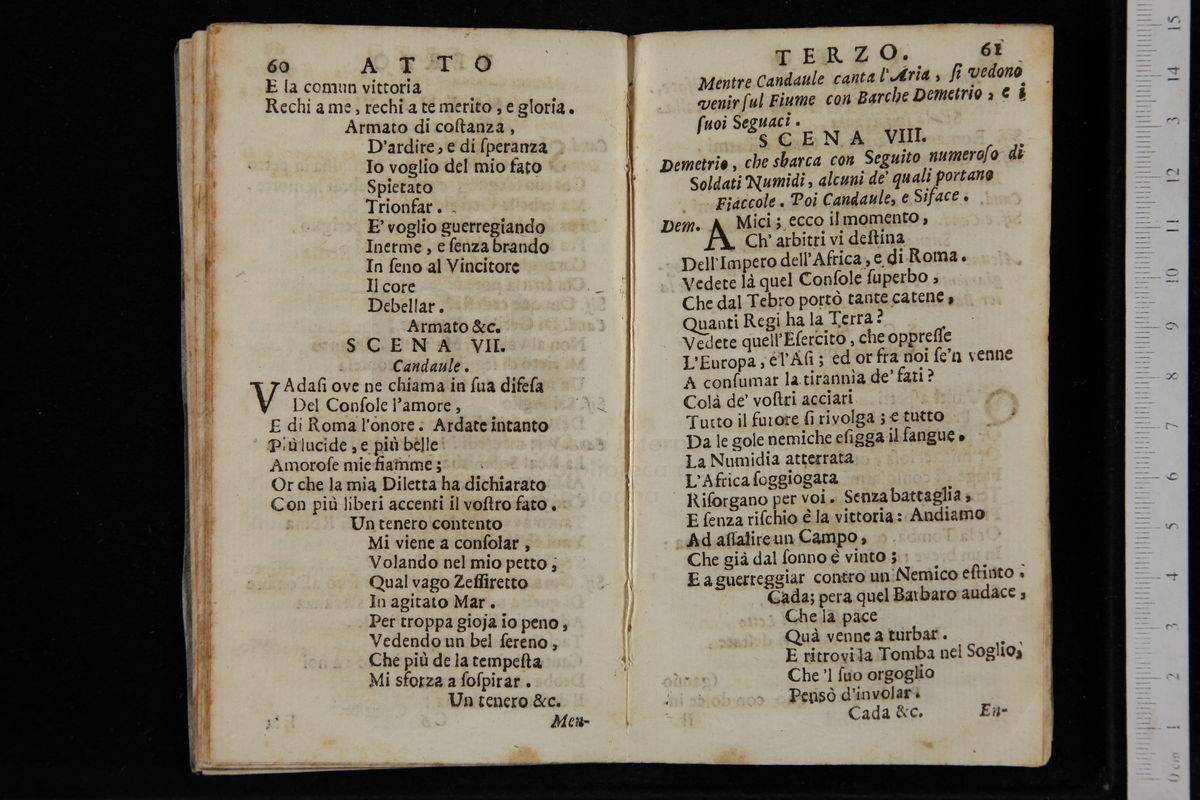 60 A T T O
E la comun vittoria
Rechi a me, rechi a te merito, e gloria.
Armato di coſtanza,
D'ardire, e di ſperanza
Io voglio del mio fato
Spietato
Trionfar.
E' voglio guerregiando
Inerme, e ſenza brando
In ſeno al Vincitore
Il core
Debellar.
Armato &c.
S C E N A VII.
Candaule.
VAdaſi ove ne chiama in ſua difeſa
Del Conſole l'amore,
E di Roma l'onore. Ardate intanto
Più lucide, e più belle
Amoroſe mie fiamme;
Or che la mia Diletta ha dichiarato
Con più liberi accenti il voſtro fato.
Un tenero contento
Mi viene a conſolar,
Volando nel mio petto;
Qual vago Zeffiretto
In agitato Mar.
Per troppa gioja io peno,
Vedendo un bel ſereno,
Che più de la tempeſta
Mi sforza a ſoſpirar.
Un tenero &c.
Men-
T E R Z O. 61
Mentre Candaule canta l'Aria, ſi vedono
venir ſul Fiume con Barche Demetrio, e i
ſuoi Seguaci.
S C E N A VIII.
Demetrio, che sbarca con Seguito numeroſo di
Soldati Numidi, alcuni de' quali portano
Fiaccole. Poi Candaule, e Siface.
Dem. AMici; ecco il momento,
Ch' arbitri vi deſtina
Dell'Impero dell'Africa, e di Roma.
Vedete là quel Conſole ſuperbo,
Che dal Tebro portò tante catene,
Quanti Regi ha la Terra?
Vedete quell'Eſercito, che oppreſſe
L'Europa, e l'Aſi; ed or fra noi ſe'n venne
A conſumar la tirannìa de' fati?
Colà de' voſtri acciari
Tutto il furore ſi rivolga; e tutto
Da le gole nemiche eſigga il ſangue.
La Numidia atterrata
L'Africa ſoggiogata
Riſorgano per voi. Senza battaglia,
E ſenza riſchio è la vittoria: Andiamo
Ad aſſalire un Campo,
Che già dal ſonno è vinto;
E a guerreggiar contro un Nemico eſtinto.
Cada; pera quel Barbaro audace,
Che la pace
Quà venne a turbar.
E ritrovi la Tomba nel Soglio,
Che 'l ſuo orgoglio
Pensò d'involar.
Cada &c.
En-
15
14
3
12
11
10
9
8
7
6
5
4
3
2
1
0 cm